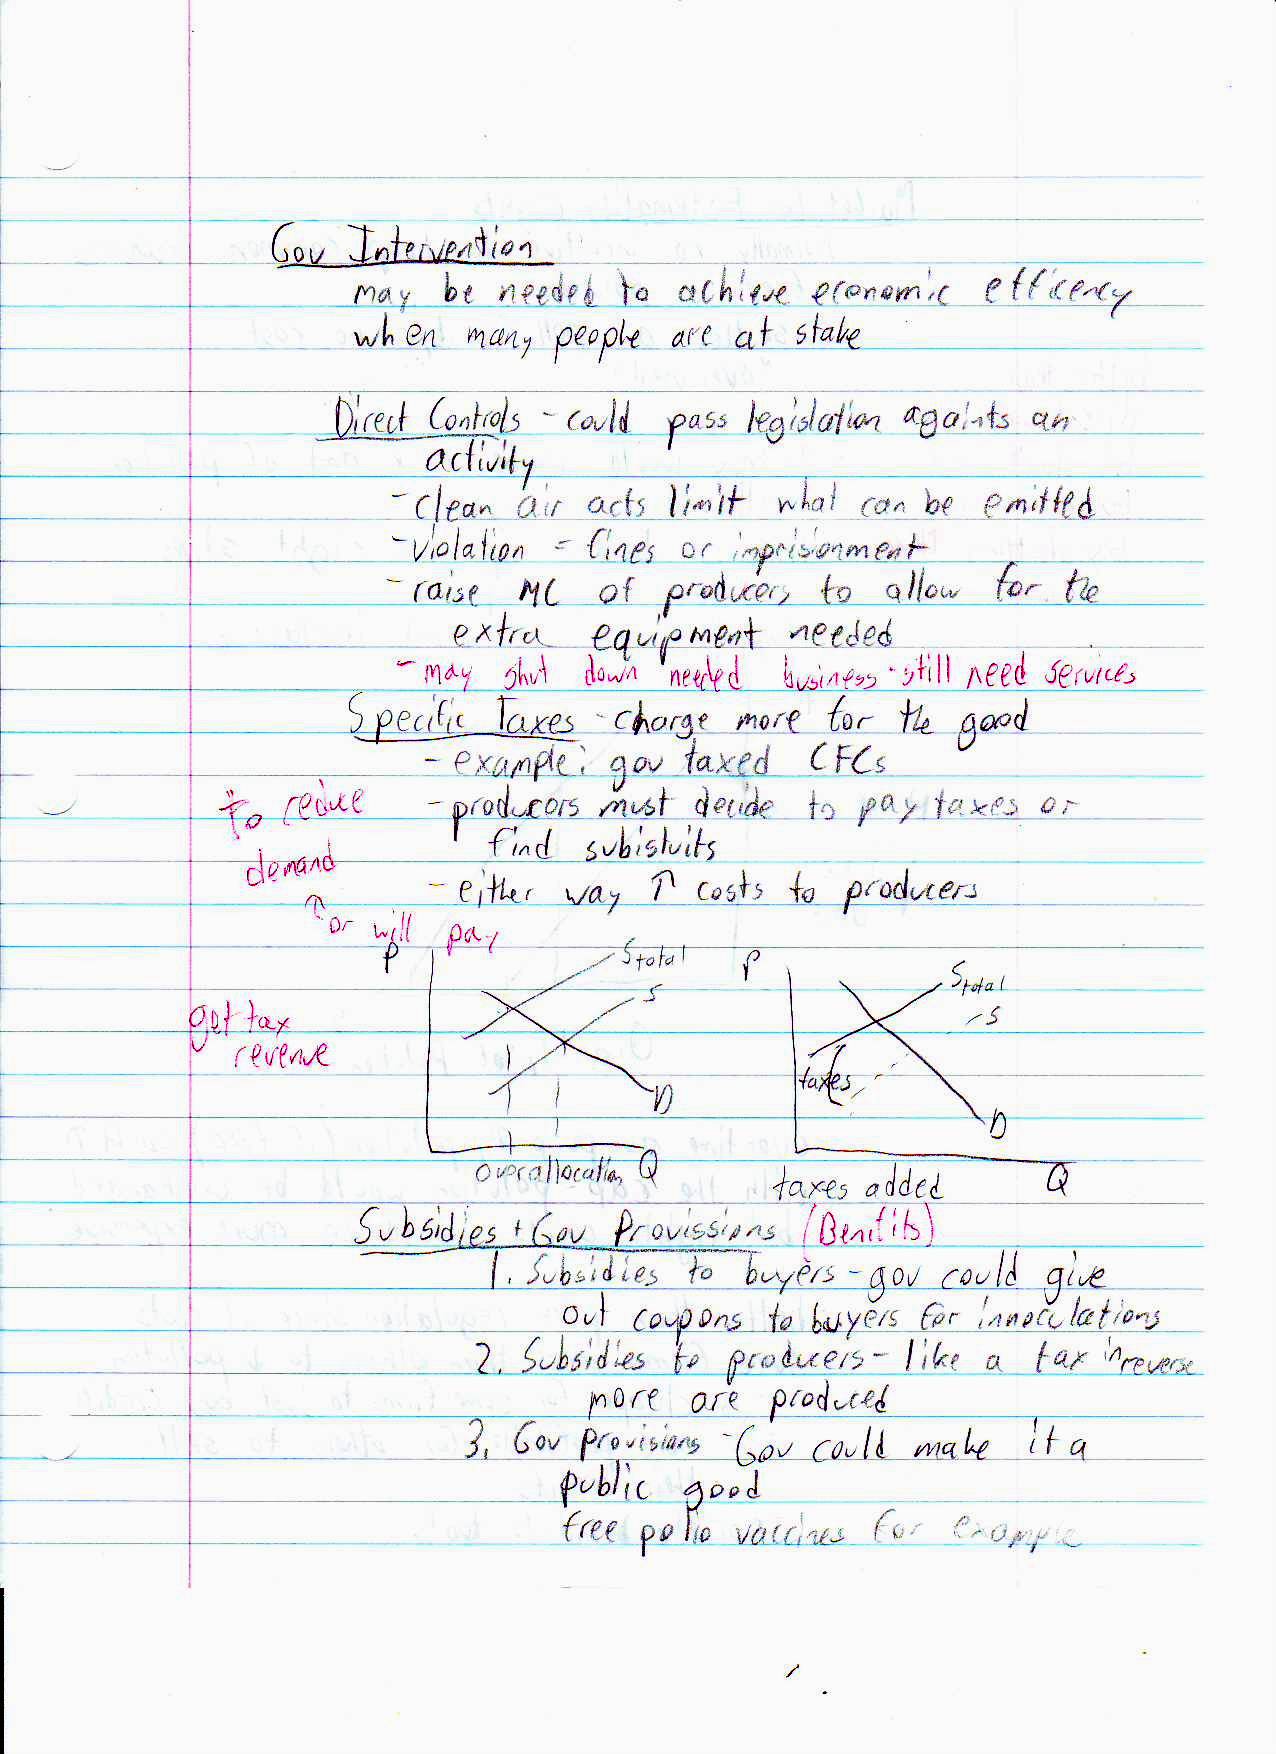 Gov Intervention
may be needed to achieve economic efficency
when many people are at stake
Direct Controls - could pass legislation againts an
activity
- clean air acts limit what can be emitted
- violation = fines or imprisionment
- raise MC of producers to allow for the
extra equipment needed
- may shut down needed business - still need services
Specific Taxes - charge more for the good
- example: gov taxed CFCs
to reduce - producors must decide to pay taxes or
demand find subistuits
- either way ↑ costs to producers
↑ or will pay
get tax
revenue
P Stotal S D Q
overallocation
P Stotal S taxes D Q
taxes added
Subsidies + Gov Provissions (Benifits)
1. Subsidies to buyers - gov could give
out coupons to buyers for innoculations
2. Subsidies to producers - like a tax in reverse
more are produced
3. Gov provisions - Gov could make it a
public good
free polio vaccines for example